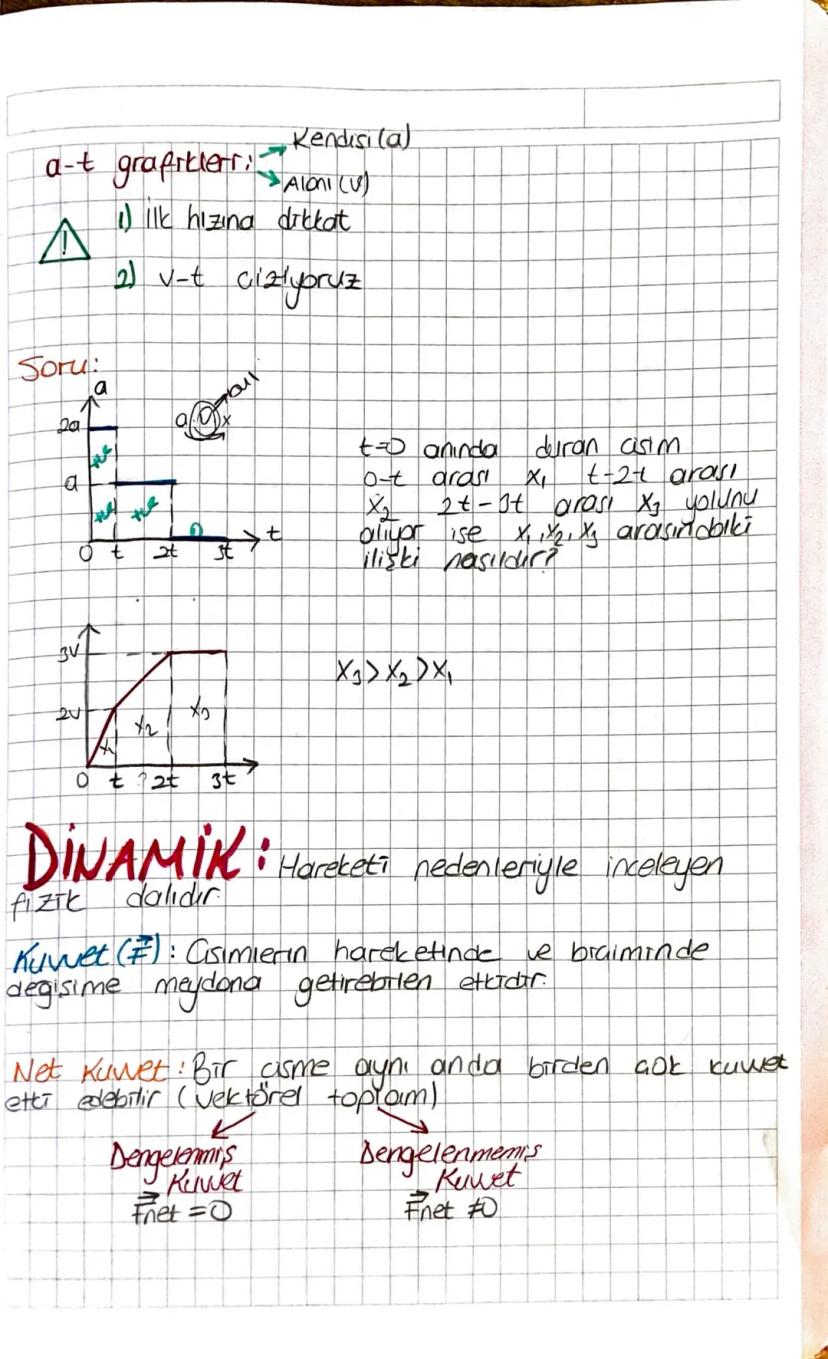 a-t grafikleri: → Kendisi (a)
→ Alanı (v)
1) ilk hızına dikkat
2) v-t çiziyoruz
Soru:
a
2a
+v
a
+v +v
0
0 t 2t 3t t
a v x
t=0 anında duran cisim
0-t arası x₁ t-2t arası
x₂ 2t-3t arası x₃ yolunu
alıyor ise x₁, x₂, x₃ arasındaki
ilişki nasıldır?
3V
2V
x₁ x₂ x₃
0 t 2t 3t
x₃>x₂>x₁
DİNAMİK: Hareketi nedenleriyle inceleyen
fizik dalıdır.
Kuvvet (F⃗): Cisimlerin hareketinde ve biçiminde
değişime meydana getirebilen etkidir.
Net Kuvvet: Bir cisme aynı anda birden çok kuvvet
etki edebilir (vektörel toplam)
Dengelenmiş
Kuvvet
F⃗net = 0
Dengelenmemiş
Kuvvet
F⃗net ≠ 0